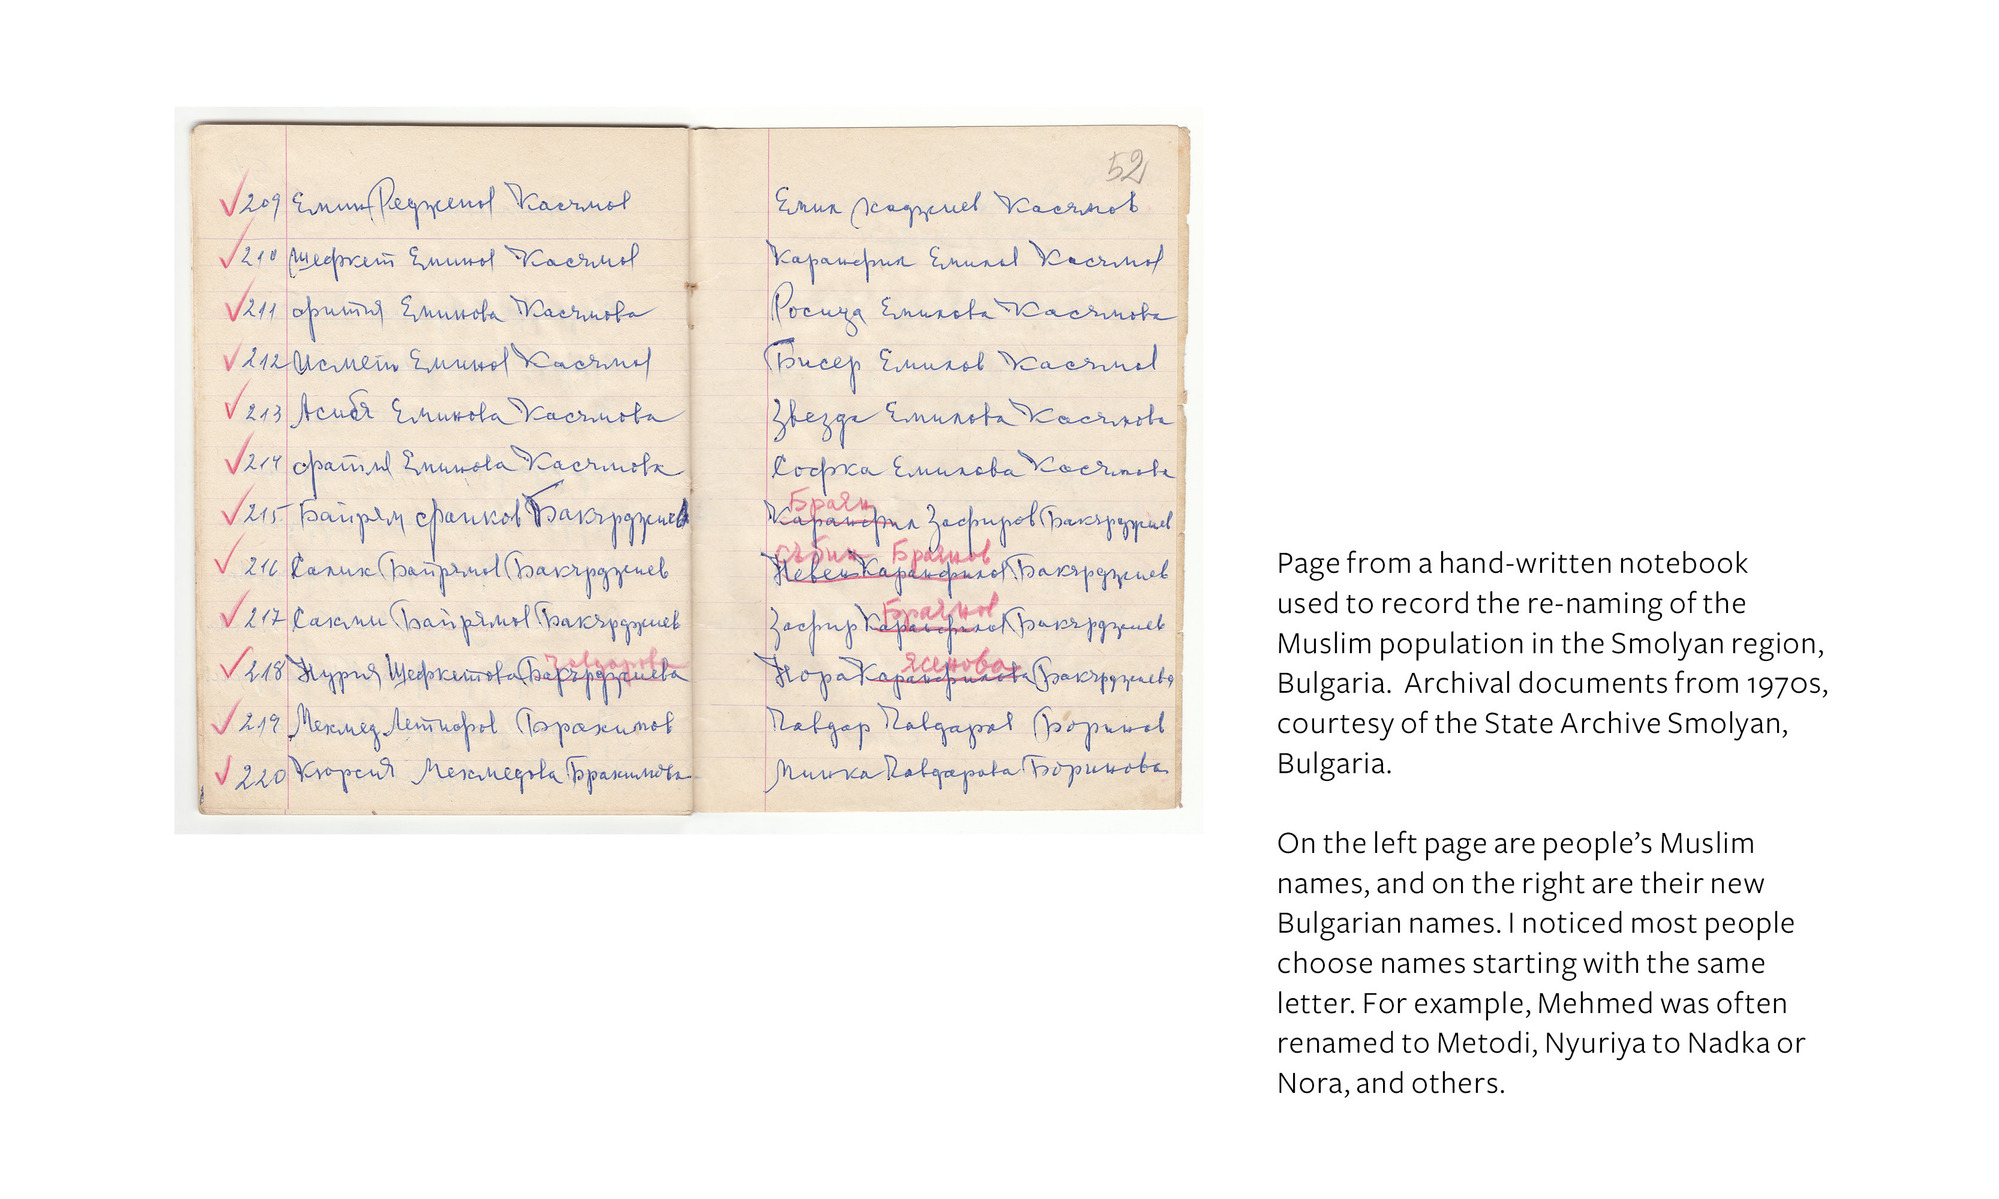 52
209 Емин Реджепов Касямов
Емин Хаджиев Касямов
210 Шефкет Еминов Касямов
Карамфил Емилов Касямов
211 Фития Еминова Касямова
Росица Емилова Касямова
212 Исмет Еминов Касямов
Бисер Емилов Касямов
213 Асибя Еминова Касямова
Звезда Емилова Касямова
214 Фатмя Еминова Касямова
Софка Емилова Касямова
Браян
215 Байрям Фаиков Бакърджиев
Карамфил Зафиров Бакърджиев
Събин Браянов
216 Салик Байрямов Бакърджиев
Невен Карамфилов Бакърджиев
Браянов
217 Сакми Байрямов Бакърджиев
Зафир Карамфилов Бакърджиев
Ясенова
218 Нурия Шефкетова Бакърджиева
Нора Карамфилова Бакърджиева
219 Мехмед Брахимов
Павдар Павдаров Боринов
220 Кюрсия Мехмедова Брахимова
Минка Павдарова Боринова
Page from a hand-written notebook
used to record the re-naming of the
Muslim population in the Smolyan region,
Bulgaria.  Archival documents from 1970s,
courtesy of the State Archive Smolyan,
Bulgaria.
On the left page are people’s Muslim
names, and on the right are their new
Bulgarian names. I noticed most people
choose names starting with the same
letter. For example, Mehmed was often
renamed to Metodi, Nyuriya to Nadka or
Nora, and others.